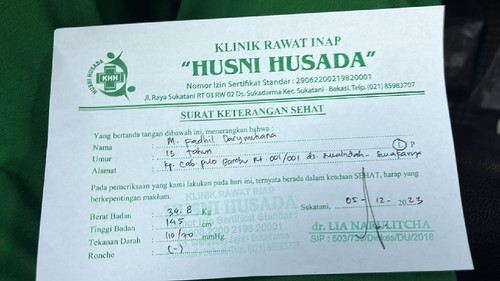 KLINIK RAWAT INAP
"HUSNI HUSADA"
Nomor Izin Sertifikat Standar : 29062200219820001
Jl, Raya Sukatani RT 03 RW 02 Ds. Sukadarma Kec. Sukatani - Bekasi. Telp. (021) 85983707
HUSNI HUSADA
KHH
SURAT KETERANGAN SEHAT
Yang bertanda tangan dibawah ini, menerangkan bahwa :
Nama : M. Fadhil L P
Umur : 13 tahun
Alamat : Kp. Cab. pulo Bambu Rt. 001/001 ds.
Pada pemeriksaan yang kami lakukan pada hari ini, ternyata berada dalam keadaan SEHAT, harap yang
berkepentingan maklum.
Berat Badan : 34.8 Kg
Tinggi Badan : 145 cm
Tekanan Darah : 110/70 mmHg
Ronche : (-)
Sukatani, 05 - 12 - 2023
KLINIK RAWAT INAP
HUSNI HUSADA
dr. LIA NARULITCHA